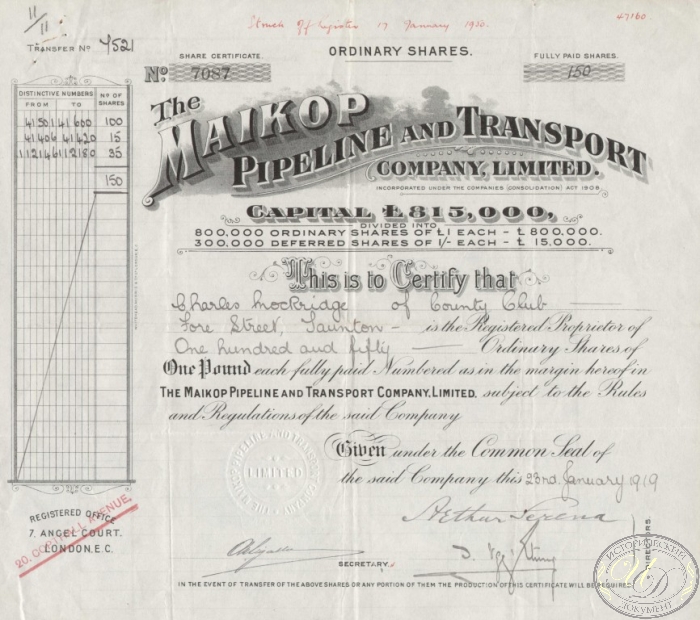 11/11
17 January 19
47160.
TRANSFER No 4521
ORDINARY SHARES.
SHARE CERTIFICATE.
No 7087
FULLY PAID SHARES.
150
DISTINCTIVE NUMBERS
No OF SHARES
FROM TO
41501 41600 100
41406 41420 15
112146 112180 35
150
The
MAIKOP
PIPELINE AND TRANSPORT
COMPANY, LIMITED.
INCORPORATED UNDER THE COMPANIES (CONSOLIDATION) ACT 1908.
CAPITAL £815,000,
DIVIDED INTO
800,000 ORDINARY SHARES OF £1 EACH - £ 800.000.
300,000 DEFERRED SHARES OF 1/- EACH - £ 15.000.
This is to Certify that
Charles Mockridge of County Club
Fore Street, Taunton - is the Registered Proprietor of
One hundred and fifty Ordinary Shares of
One Pound each fully paid Numbered as in the margin hereof in
THE MAIKOP PIPELINE AND TRANSPORT COMPANY, LIMITED. subject to the Rules
and Regulations of the said Company
Given under the Common Seal of
the said Company this 23rd January 1919
LIMITED
REGISTERED OFFICE
7. ANGEL COURT.
LONDON. E.C.
20. COPTHALL AVENUE.
SECRETARY.
IN THE EVENT OF TRANSFER OF THE ABOVE SHARES OR ANY PORTION OF THEM THE PRODUCTION OF THIS CERTIFICATE WILL BE REQUIRED
ИСТОРИЧЕСКИЙ
ДОКУМЕНТ